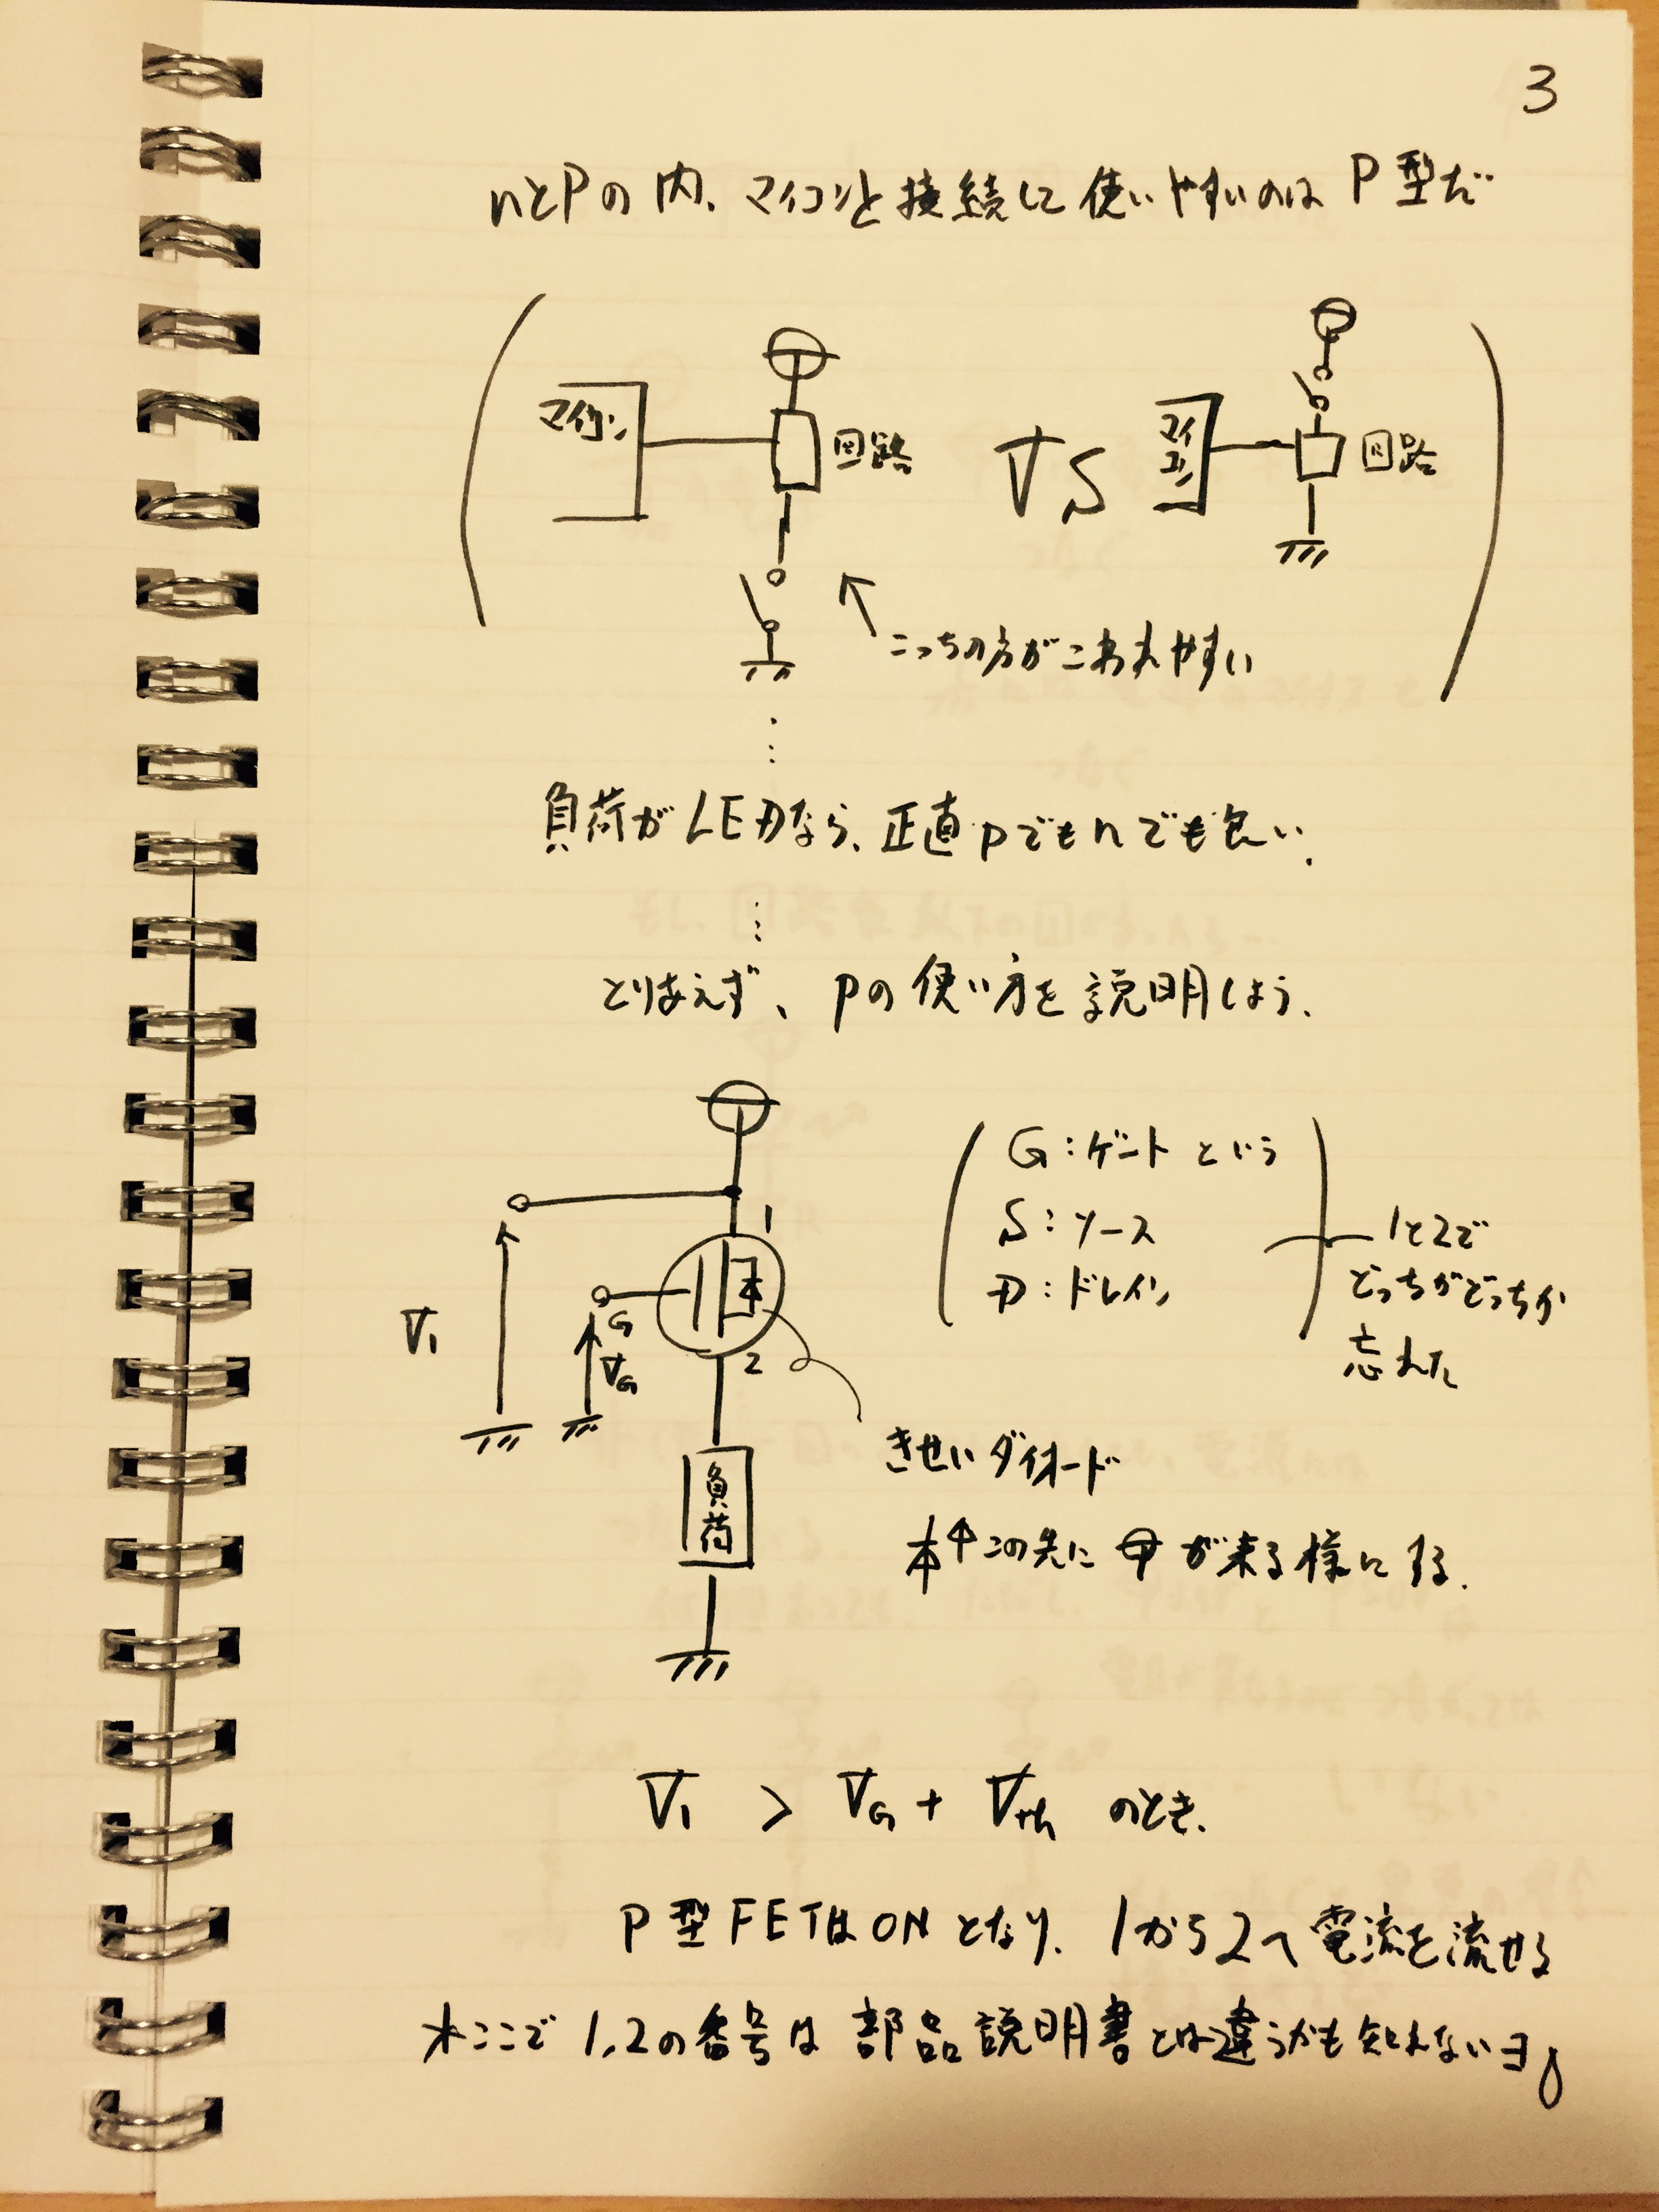 3
nとPの内、マイコンと接続して使いやすいのは P型だ
マイコン
回路
VS
マイコン
回路
こっちの方がこわれやすい
負荷がLEDなら、正直pでもnでも良い.
とりあえず、Pの使い方を説明しよう.
G:ゲートという
S:ソース
D:ドレイン
1と2で
どっちがどっちか
忘れた
1
V1
G
VG
2
負荷
きせいダイオード
この先に が来る様にする.
V1 > VG + Vth のとき.
P型FETはONとなり、1から2へ電流を流せる
*ここで1,2の番号は部品説明書とは違うかも知れないヨ。